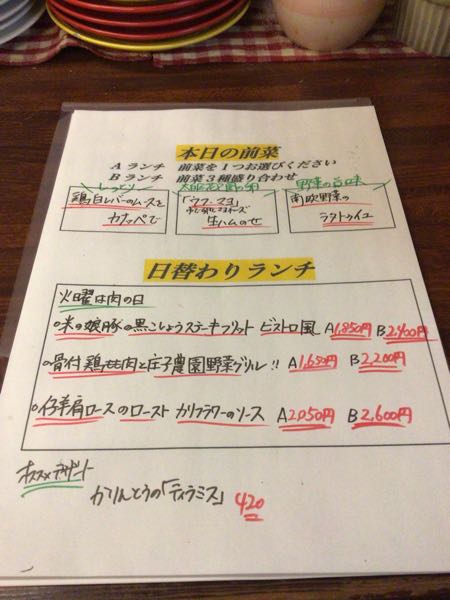 本日の前菜
A ランチ 前菜を1つお選びください
B ランチ 前菜3種盛り合わせ
しっとり
鶏白レバーのムースを
カナッペで
「ウフ・マヨ」
ゆで卵にマヨネーズ
生ハムのせ
野菜の旨味
南欧野菜の
ラタトゥイユ
日替わりランチ
火曜は肉の日
○米の娘豚の黒こしょうステーキフリット ビストロ風 A1,850円 B2,400円
○骨付鶏もも肉と庄子農園野菜グリル!! A1,650円 B2,200円
○仔羊肩ロースのロースト カリフラワーのソース A2,050円 B2,600円
オススメデザート
かりんとうの「ティラミス」 420